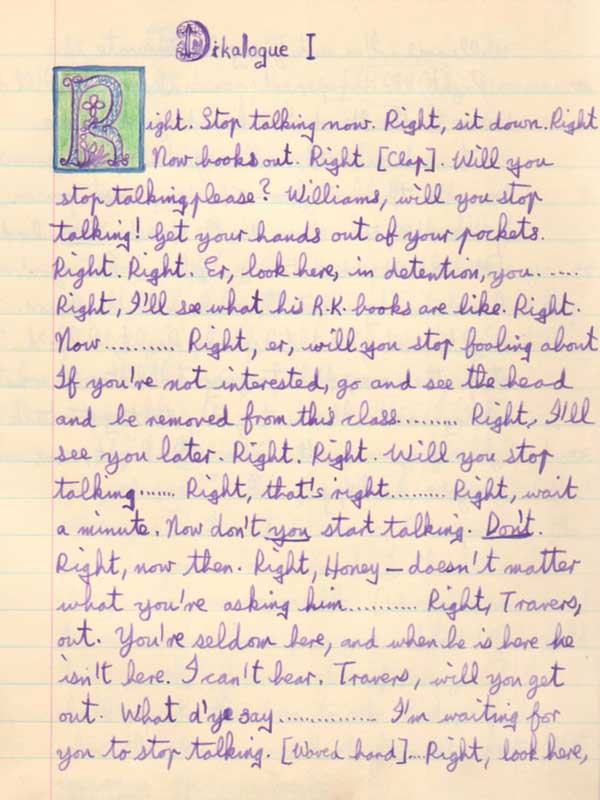 Dikalogue I
Right. Stop talking now. Right, sit down. Right
Now books out. Right [Clap]. Will you
stop talking please? Williams, will you stop
talking! Get your hands out of your pockets.
Right. Right. Er, look here, in detention, you......
Right, I'll see what his R.K. books are like. Right.
Now............ Right, er, will you stop fooling about
If you're not interested, go and see the head
and be removed from this class......... Right, I'll
see you later. Right. Right. Will you stop
talking....... Right, that's right......... Right, wait
a minute. Now don't you start talking. Don't.
Right, now then. Right, Honey – doesn't matter
what you're asking him.......... Right, Travers,
out. You're seldom here, and when he is here he
isn't here. I can't hear. Travers, will you get
out. What d'ye say............... I'm waiting for
you to stop talking. [Waved hand]....Right, look here,